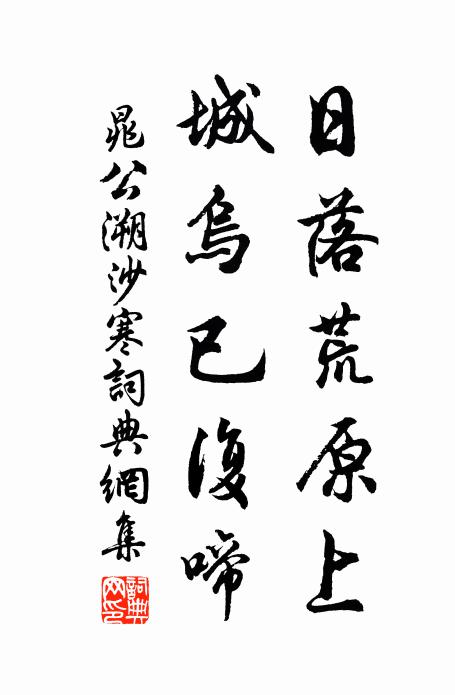 日落荒原上
城烏已復啼
晁公溯沙寒詞典網集
詞典網印